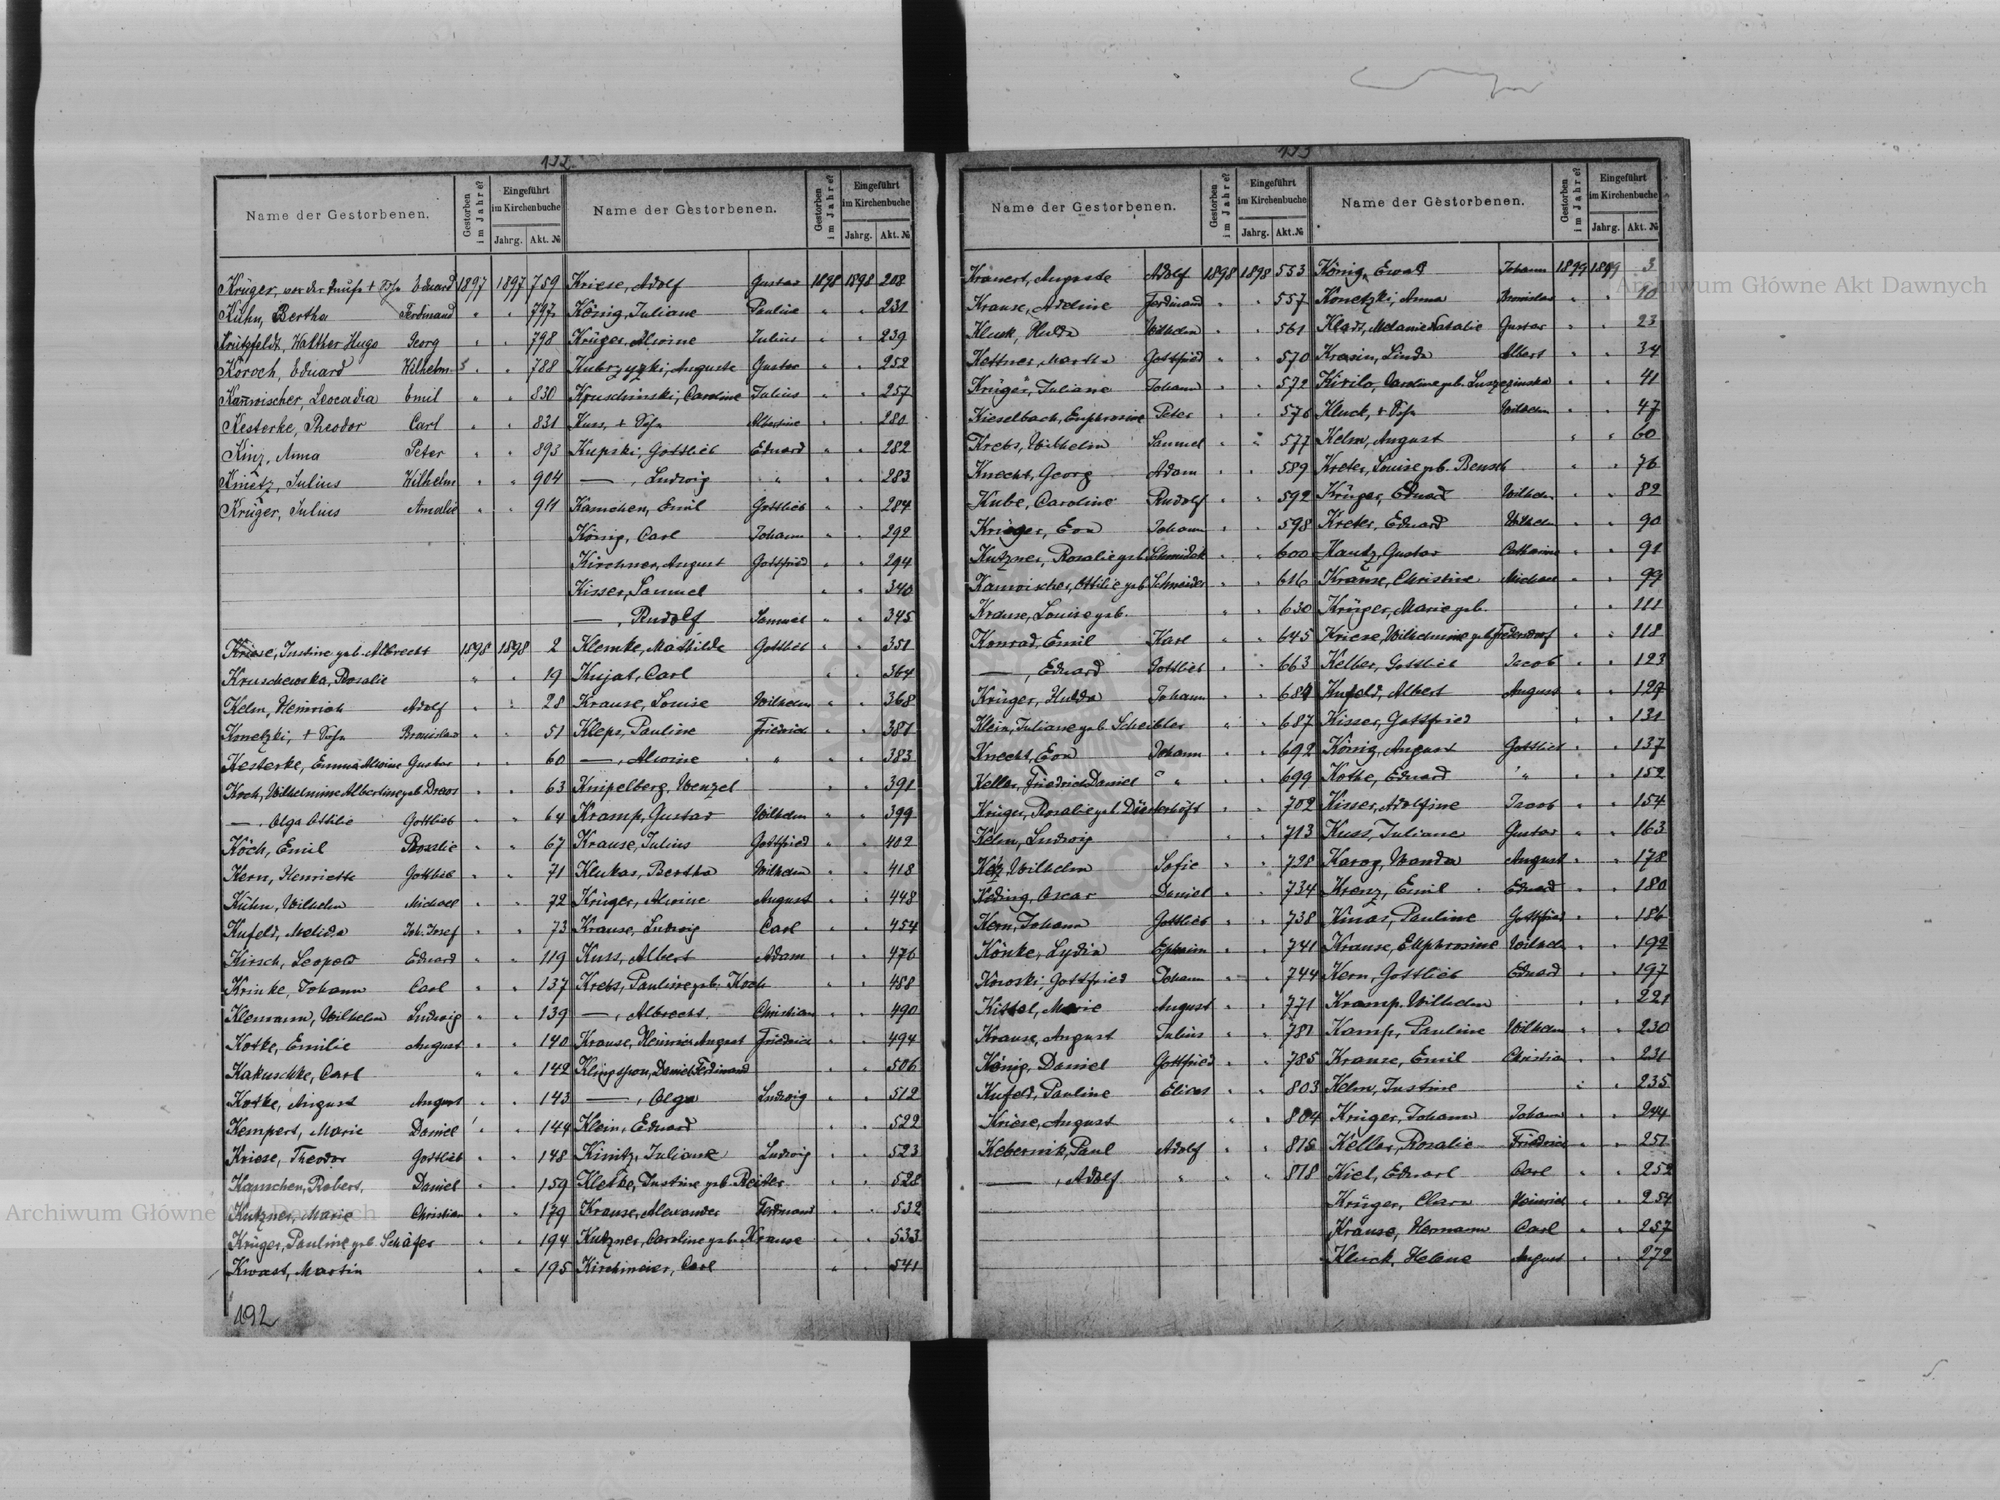 192
Name der Gestorbenen.
Gestorben im Jahre?
Eingeführt im Kirchenbuche
Jahrg. Akt. №
Krüger, vor der Taufe + Eduard 1897 1897 759
Kuhn, Bertha Ferdinand " " 797
Krützfeldt, Walther Hugo Georg " " 798
Koroch, Eduard Wilhelm " " 788
Kannwischer, Leocadia Emil " " 830
Kesterke, Theodor Carl " " 831
Kinz, Anna Peter " " 893
Kmetz, Julius Wilhelm " " 904
Krüger, Julius Amalie " " 911
Kriese, Justine geb. Albrecht 1898 1898 2
Kruschewska, Rosalie " " 19
Kelm, Heinrich Adolf " " 28
Kmetzki, + Bronislaw " " 51
Kesterke, Emma Alwine Gustav " " 60
Koch, Wilhelmine Albertine geb. Draws " " 63
—, Olga Ottilie Gottlieb " " 64
Koch, Emil Rosalie " " 67
Kern, Henriette Gottlieb " " 71
Kühn, Wilhelm Michael " " 72
Kufeld, Melida Joh. Josef " " 73
Hirsch, Leopold Eduard " " 119
Krinke, Johann Carl " " 137
Klemann, Wilhelm Ludwig " " 139
Kotke, Emilie August " " 140
Kakuschke, Carl " " 142
Kotke, August August " " 143
Kempert, Marie Daniel " " 144
Kriese, Theodor Gottlieb " " 148
Kamchen, Robert, Daniel " " 159
Kutzner, Marie Christian " " 179
Krüger, Pauline geb. Schäfer " " 194
Kwast, Martin " " 195
192
Name der Gestorbenen.
Gestorben im Jahre?
Eingeführt im Kirchenbuche
Jahrg. Akt. №
Kriese, Adolf Gustav 1898 1898 208
König, Juliane Pauline " " 231
Krüger, Alwine Julius " " 239
Kubrzyzki, Auguste Gustav " " 252
Kruschinski, Caroline Julius " " 257
Kuss, + Albertine " " 280
Kupski, Gottlieb Eduard " " 282
—, Ludwig " " " 283
Kamchen, Emil Gottlieb " " 284
König, Carl Johann " " 292
Kirchner, August Gottfried " " 294
Kisser, Samuel " " 340
—, Rudolf Samuel " " 345
Klemke, Mathilde Gottlieb " " 351
Kujat, Carl " " 364
Krause, Louise Wilhelm " " 368
Kleps, Pauline Friedrich " " 381
—, Alwine " " " 383
Knipelberg, Wenzel " " 391
Kramp, Gustav Wilhelm " " 399
Krause, Julius Gottfried " " 402
Klukas, Bertha Wilhelm " " 418
Krüger, Alwine August " " 448
Krause, Ludwig Carl " " 454
Kuss, Albert Adam " " 476
Krebs, Pauline geb. Koch " " 488
—, Albrecht Christian " " 490
Krause, Heinrich August Friedrich " " 494
Klingspon, Daniel Ferdinand " " 506
—, Olga Ludwig " " 512
Klein, Eduard " " 522
Kinitz, Juliane Ludwig " " 523
Kletke, Justine geb. Reiter " " 528
Krause, Alexander Ferdinand " " 532
Kutzner, Caroline geb. Krause " " 533
Kirchmeier, Carl " " 541
193
Name der Gestorbenen.
Gestorben im Jahre?
Eingeführt im Kirchenbuche
Jahrg. Akt. №
Kranert, Auguste Adolf 1898 1898 553
Krause, Adeline Ferdinand " " 557
Kluck, Hulda Wilhelm " " 561
Kettner, Martha Gottfried " " 570
Krüger, Juliane Johann " " 572
Kieselbach, Euphrosine Peter " " 576
Krebs, Wilhelm Samuel " " 577
Knecht, Georg Adam " " 589
Kube, Caroline Rudolf " " 592
Krieger, Eva Johann " " 598
Kutzner, Rosalie geb. Schmidtk " " 600
Kanwischer, Ottilie geb. Schneider " " 616
Krause, Louise geb. " " 630
Konrad, Emil Karl " " 645
—, Eduard Gottlieb " " 663
Krüger, Hulda Johann " " 684
Klein, Juliane geb. Scheibler " " 687
Knecht, Eva Johann " " 692
Keller, Friedrich Daniel " " " 699
Krüger, Rosalie geb. Düsterhöft " " 702
Kelm, Ludwig " " 713
Wilhelm Sofie " " 728
Keding, Oscar Daniel " " 734
Kern, Johann Gottlieb " " 738
Könke, Lydia Ephraim " " 741
Koroski, Gottfried Johann " " 744
Kittel, Marie August " " 771
Krause, August Julius " " 781
König, Daniel Gottfried " " 785
Kufeld, Pauline Elias " " 803
Kriese, August " " 804
Kebernik, Paul Adolf " " 815
—, Adolf " " " 818
Name der Gestorbenen.
Gestorben im Jahre?
Eingeführt im Kirchenbuche
Jahrg. Akt. №
König, Ewald Johann 1899 1899 3
Kmetzki, Anna Bronislaw " " 10
Kladt, Melanie Natalie Gustav " " 23
Krasin, Linda Albert " " 34
Kirilo, Caroline geb. Luszczinska " " 41
Kluck, + Wilhelm " " 47
Kelm, August " " 60
Kreter, Louise geb. Bensch " " 76
Krüger, Eduard Wilhelm " " 82
Kreter, Eduard Wilhelm " " 90
Kautz, Gustav Catharine " " 91
Krause, Christine Michael " " 99
Krüger, Marie geb. " " 111
Kriese, Wilhelmine geb. Federdorf " " 118
Kelber, Gottlieb Jacob " " 123
Kufeld, Albert August " " 129
Kisser, Gottfried " " 131
König, August Gottlieb " " 137
Kotke, Eduard " " " 152
Kisser, Adolfine Jacob " " 154
Kuss, Juliane Gustav " " 163
Karog, Wanda August " " 178
Krenz, Emil Eduard " " 180
Kinas, Pauline Gottfried " " 186
Krause, Euphrosine Wilhelm " " 192
Kern, Gottlieb Eduard " " 197
Kramp, Wilhelm " " 221
Kamp, Pauline Wilhelm " " 230
Krause, Emil Christian " " 231
Kelm, Justine " " 235
Krüger, Johann Johann " " 244
Keller, Rosalie Friedrich " " 251
Kiel, Eduard Carl " " 252
Krüger, Clara Heinrich " " 254
Krause, Hermann Carl " " 257
Kluck, Helene August " " 272
Archiwum Główne Akt Dawnych
Archiwum Główne Akt Dawnych